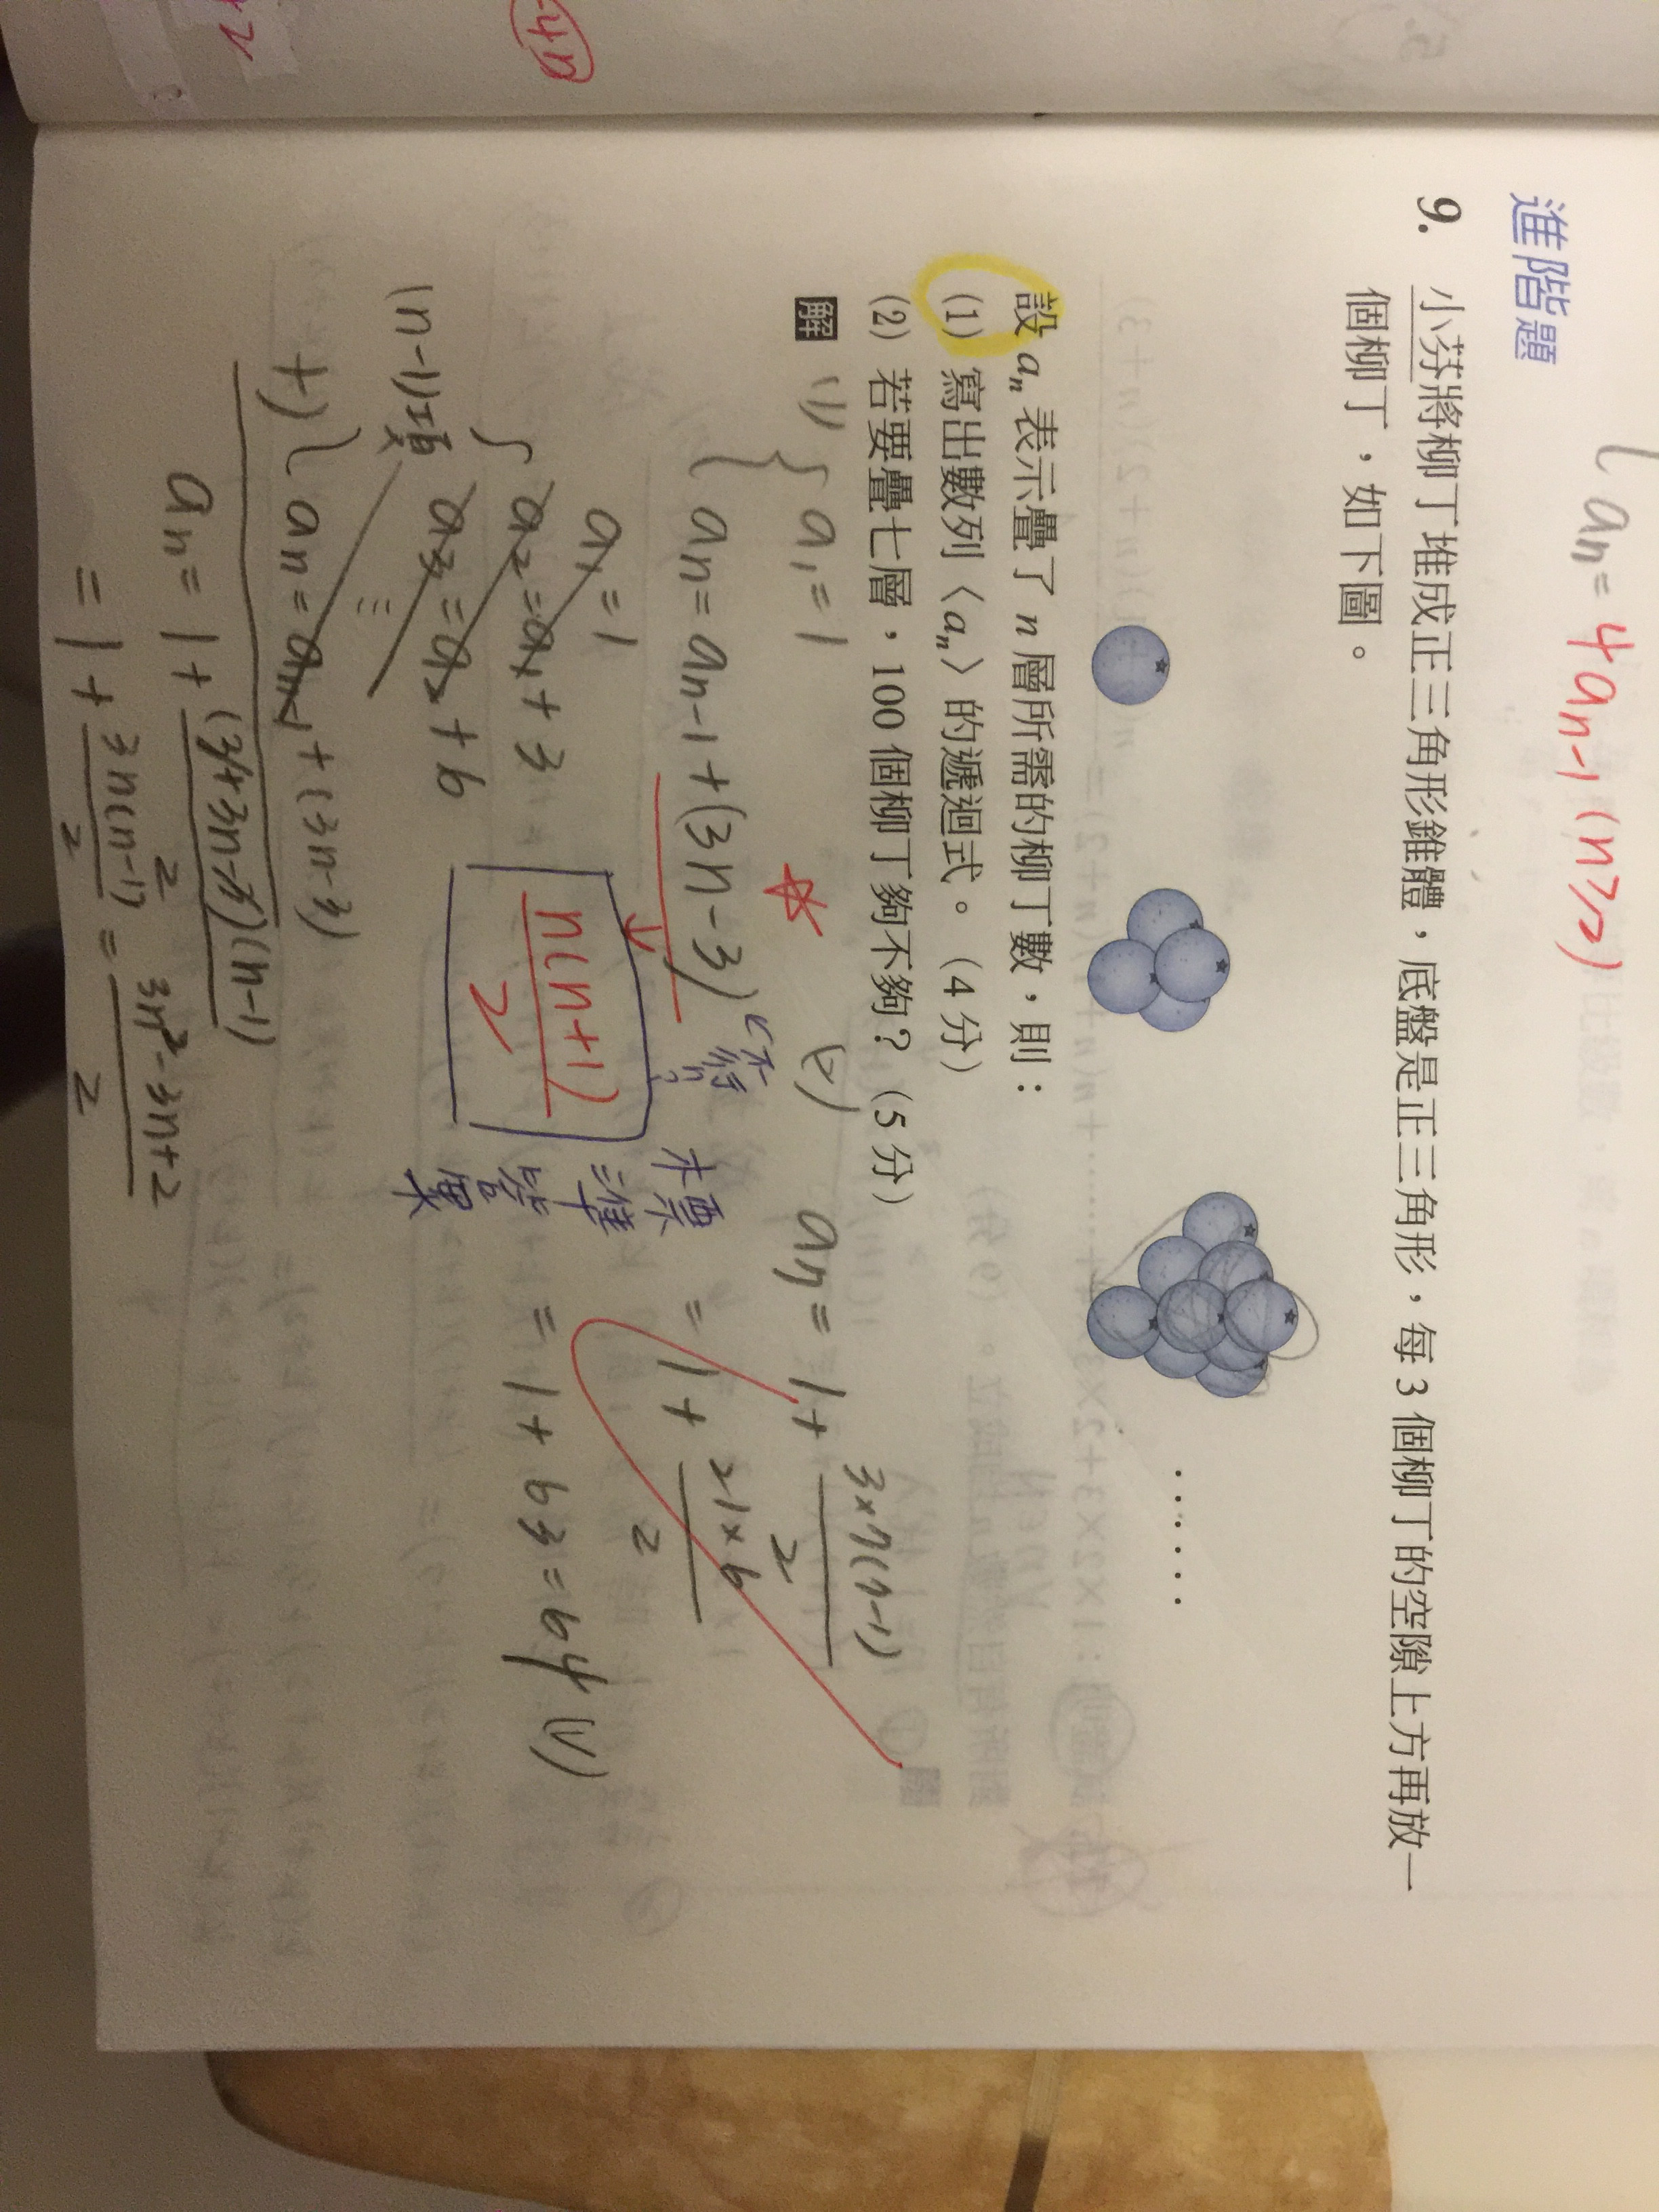 aₙ = 4aₙ₋₁ (n≥2)
進階題
9. 小芬將柳丁堆成正三角形錐體，底盤是正三角形，每 3 個柳丁的空隙上方再放一
個柳丁，如下圖。
……
設 aₙ 表示疊了 n 層所需的柳丁數，則：
(1) 寫出數列〈aₙ〉的遞迴式。（4 分）
(2) 若要疊七層，100 個柳丁夠不夠？（5 分）
解 (1) { a₁ = 1
aₙ = aₙ₋₁ + (3n-3)
不行
n(n+1)/2
標準答案
a₁ = 1
a₂ = a₁ + 3
a₃ = a₂ + 6
⋮
(n-1)項
+) aₙ = aₙ₋₁ + (3n-3)
aₙ = 1 + (3+3n-3)(n-1)/2
= 1 + 3n(n-1)/2 = 3n²-3n+2/2
(2) a₇ = 1 + 3×7(7-1)/2
= 1 + 21×6/2
= 1 + 63 = 64